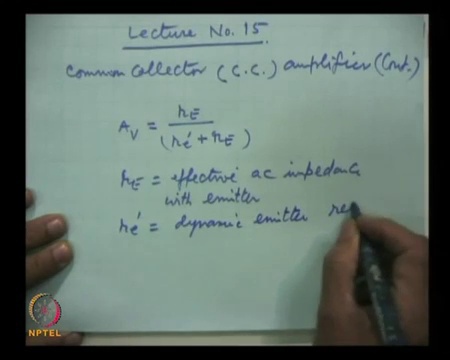 Lecture No. 15.
Common Collector (C.C.) amplifier (Cont.)
A_V = r_E / (r_e' + r_E)
r_E = effective ac impedance
with emitter
r_e' = dynamic emitter res
NPTEL